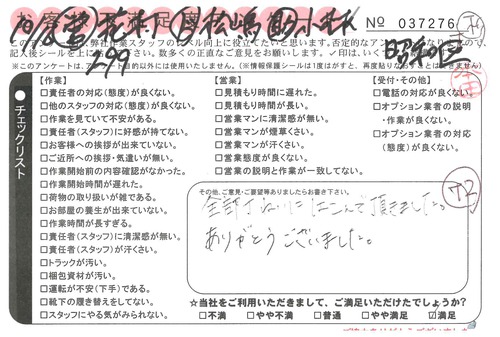 No 037276
このアンケートは、弊社作業スタッフのレベル向上に役立てたいと思います。否定的なアン
記入後シールを上に
数多くの正直なご意見をお願いします。✓印は、いく
※このアンケートは、アンケート目的以外には使用いたしません。(※情報保護シールは1度はがすと、再度貼りなおすことはできません)
チェックリスト
【作業】
□責任者の対応(態度)が良くない。
□他のスタッフの対応(態度)が良くない。
□作業を見ていて不安がある。
□責任者(スタッフ)に好感が持てない。
□お客様への挨拶が出来ていない。
□ご近所への挨拶・気遣いが無い。
□作業開始前の内容確認がなかった。
□作業開始時間が遅れた。
□荷物の取り扱いが雑である。
□お部屋の養生が出来ていない。
□作業時間が長すぎる。
□責任者(スタッフ)に清潔感が無い。
□責任者(スタッフ)が汗くさい。
□トラックが汚い。
□梱包資材が汚い。
□運転が不安(下手)である。
□靴下の履き替えをしてない。
□スタッフにやる気がみられない。
【営業】
□見積もり時間に遅れた。
□見積もり時間が長い。
□営業マンに清潔感が無い。
□営業マンが煙草くさい。
□営業マンが汗くさい。
□営業態度が良くない。
□営業の説明と作業が一致してない。
【受付・その他】
□電話の対応が良くない。
□オプション業者の説明
・作業が良くない。
□オプション業者の対応
(態度)が良くない。
その他、ご意見・ご要望等ありましたらお書き下さい。
72
全部ていねいにはこんで頂きました。
ありがとうございました。
☆当社をご利用いただきまして、ご満足いただけたでしょうか?
□不満 □やや不満 □普通 □やや満足 ☑満足